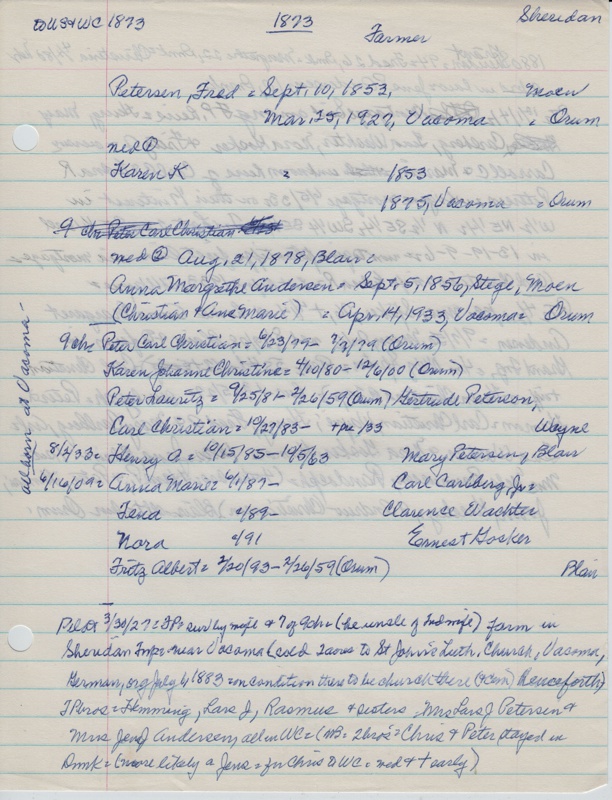 to US & WC 1873 1873 Sheridan
Farmer
Petersen, Fred = Sept. 10, 1853, Moen
Mar. 25, 1927, Vacoma = Orum
med @
Karen K = 1853
1875, Vacoma = Orum
9 chr Peter Carl Christian
med @ Aug. 21, 1878, Blair c
Anna Margrethe Andersen = Sept. 5, 1856, Stege, Moen
(Christian + Ane Marie) = Apr. 14, 1933, Vacoma = Orum
9 ch = Peter Carl Christian = 6/23/79 - 7/3/79 (Orum)
Karen Johanne Christine = 4/10/80 - 12/6/00 (Orum)
Peter Lauritz = 9/25/81 - 2/26/59 (Orum) Gertrude Peterson,
Carl Christian = 10/27/83 - + pre /33 Wayne
8/2/33 = Henry A = 10/15/85 - 10/5/63 Mary Petersen, Blair
6/16/09 = Anna Marie = 6/1/87 - Carl Carlberg, Jr =
Tena = /89 - Clarence Wachter
Nora = /91 Ernest Hosker
Fritz Albert = 2/20/93 - 2/26/59 (Orum) Blair
all born at Vacoma -
Pilot 3/30/27 = FP = surv by wife + 7 of 9 chr (he uncle of 2nd wife) farm in
Sheridan Twp = near Vacoma (sold 2 acres to St John's Luth. Church, Vacoma,
German, org July 4, 1883 = on condition there to be church there (& cem) henceforth)
FP bros = Flemming, Lars J, Rasmus & sisters Mrs Lars J Petersen &
Mrs Jens J Andersen, all in WC = (NB = 2 bros = Chris & Peter stayed in
Dmk = (more likely a Jens = for Chris to WC = med & + early)